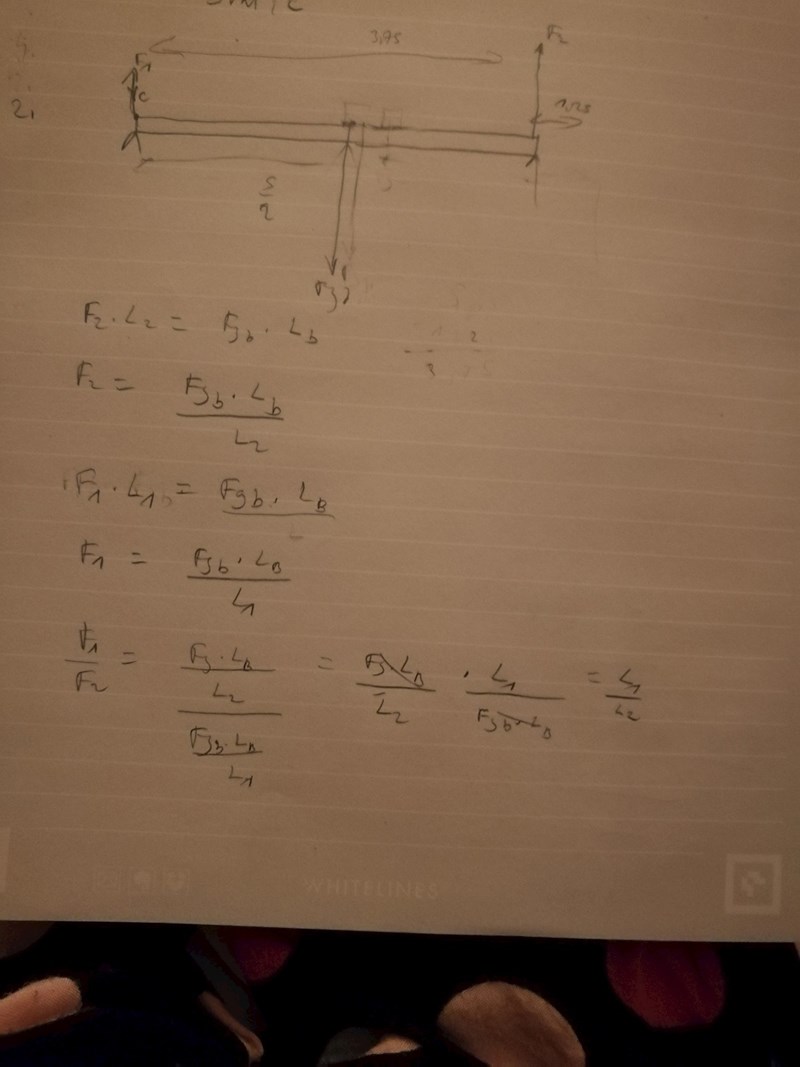 3,75
F₂
F₁
c
2,
1,25
5/2
F₂ · L₂ = Fgb · Lb
F₂ = (Fgb · Lb)/L₂
F₁ · L₁ = Fgb · LB
F₁ = (Fgb · LB)/L₁
F₁/F₂ = ((Fg · LB)/L₂)/((Fgb · LB)/L₁) = (Fg · LB)/L₂ · L₁/(Fgb · LB) = L₁/L₂
WHITELINES